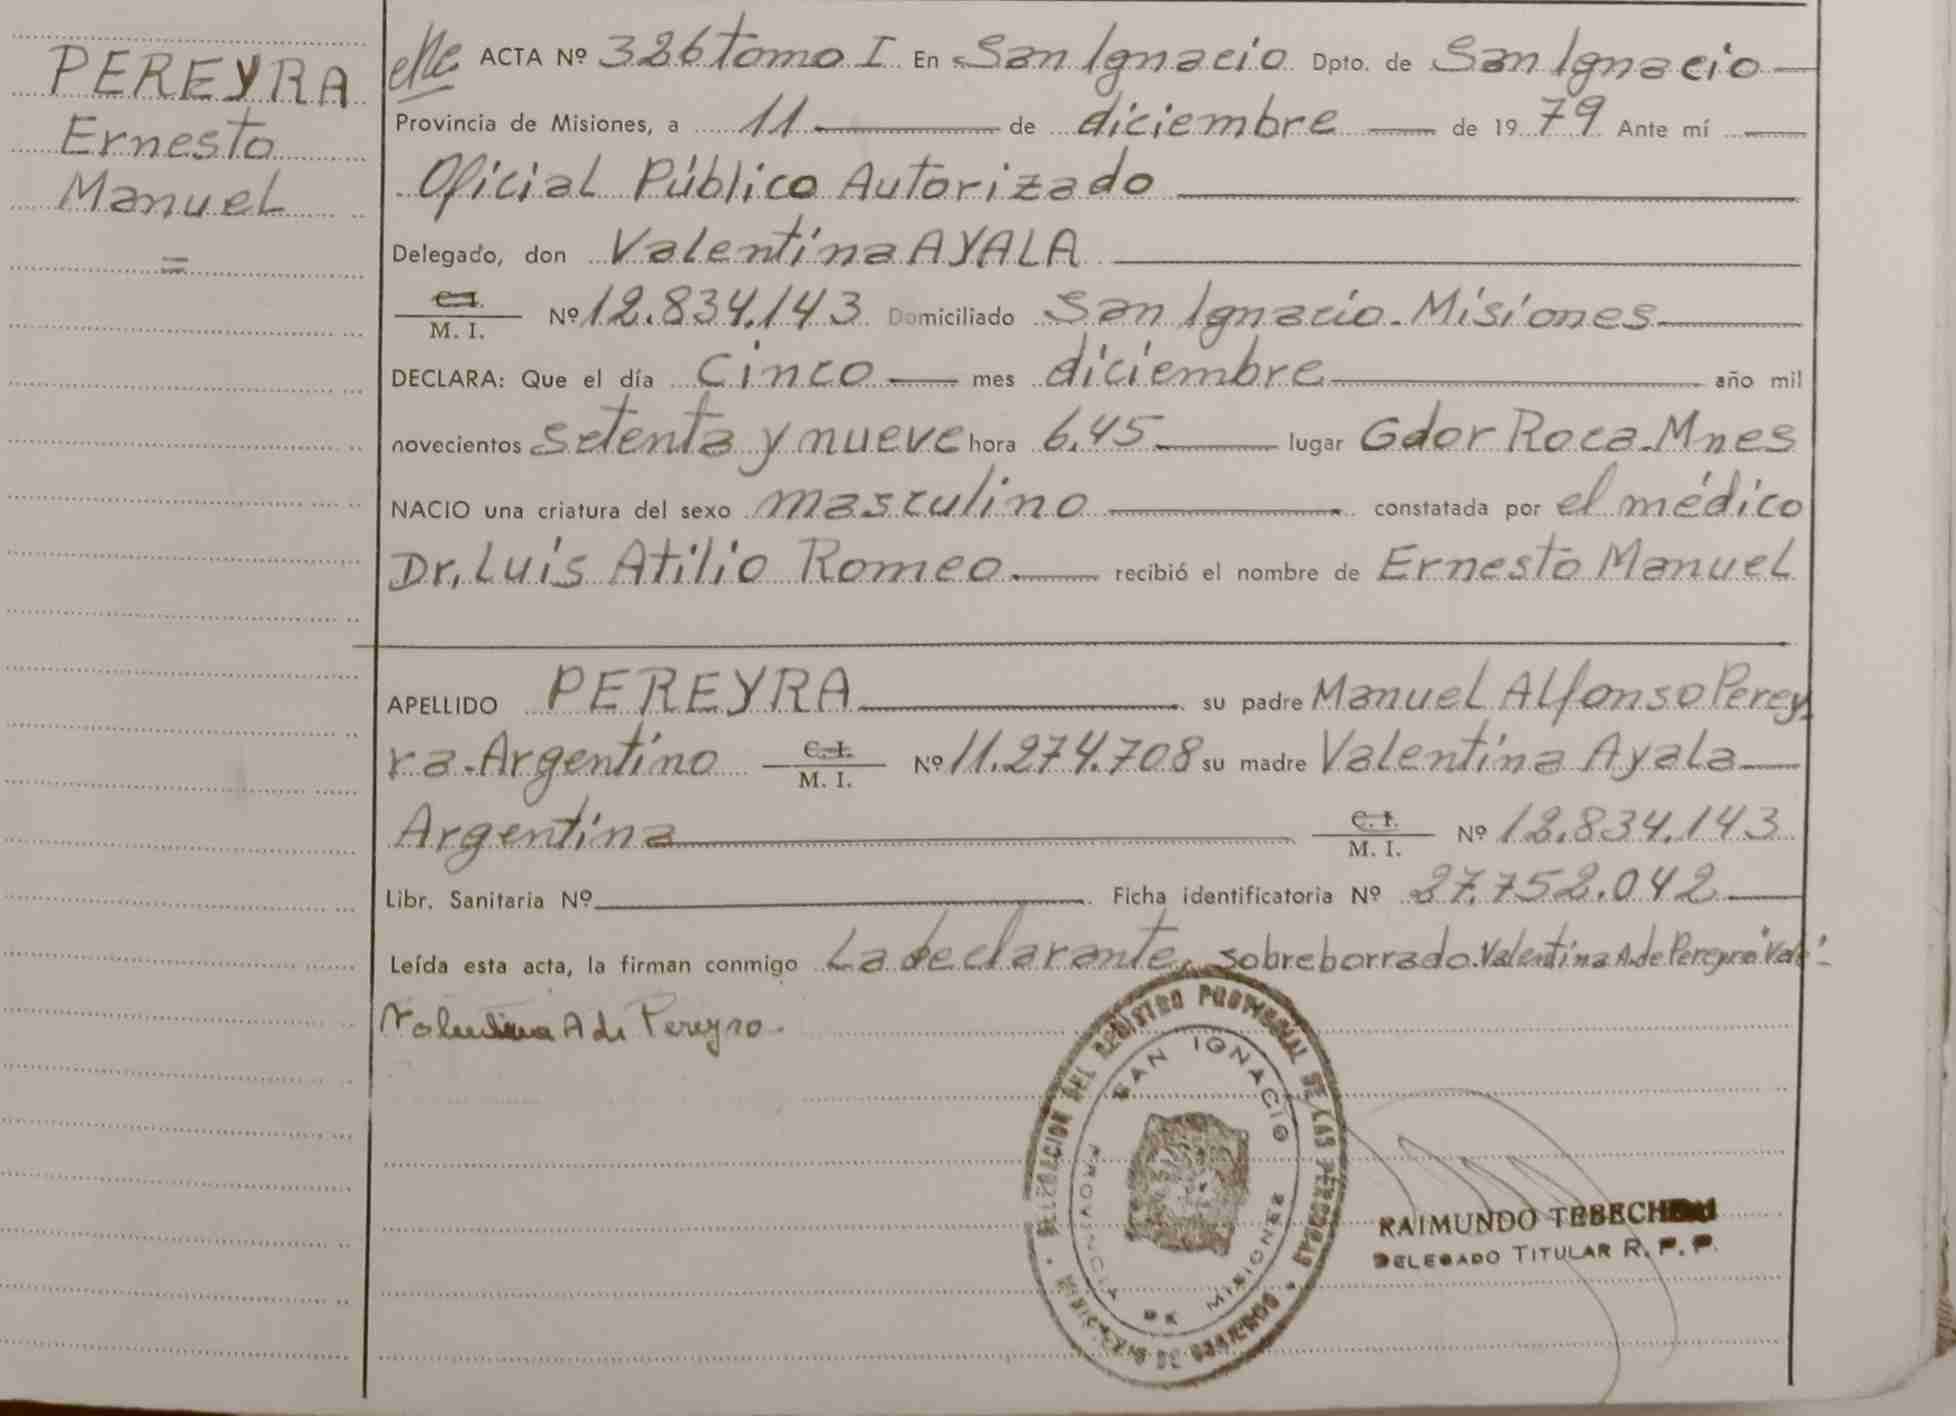 PEREYRA
Ernesto
Manuel
=
ACTA Nº 326 tomo I En San Ignacio Dpto. de San Ignacio
Provincia de Misiones, a 11 de diciembre de 1979 Ante mí
Oficial Público Autorizado
Delegado, don Valentina AYALA
C.I.
M. I. Nº 12.834.143 Domiciliado San Ignacio - Misiones
DECLARA: Que el día cinco mes diciembre año mil
novecientos setenta y nueve hora 6.45 lugar Gdor Roca - Mnes
NACIO una criatura del sexo masculino constatada por el médico
Dr. Luis Atilio Romeo recibió el nombre de Ernesto Manuel
APELLIDO PEREYRA su padre Manuel Alfonso Perey
ra - Argentino C.I. M. I. Nº 11.274.708 su madre Valentina Ayala
Argentina C.I. M. I. Nº 12.834.143
Libr. Sanitaria Nº Ficha identificatoria Nº 27.752.042
Leída esta acta, la firman conmigo La declarante, sobreborrado. Valentina A. de Pereyra "Vale"
Valentina A de Pereyra.
DIRECCION DEL REGISTRO PROVINCIAL DE LAS PERSONAS
SAN IGNACIO
PROVINCIA DE MISIONES
RAIMUNDO
DELEGADO TITULAR R. P. P.